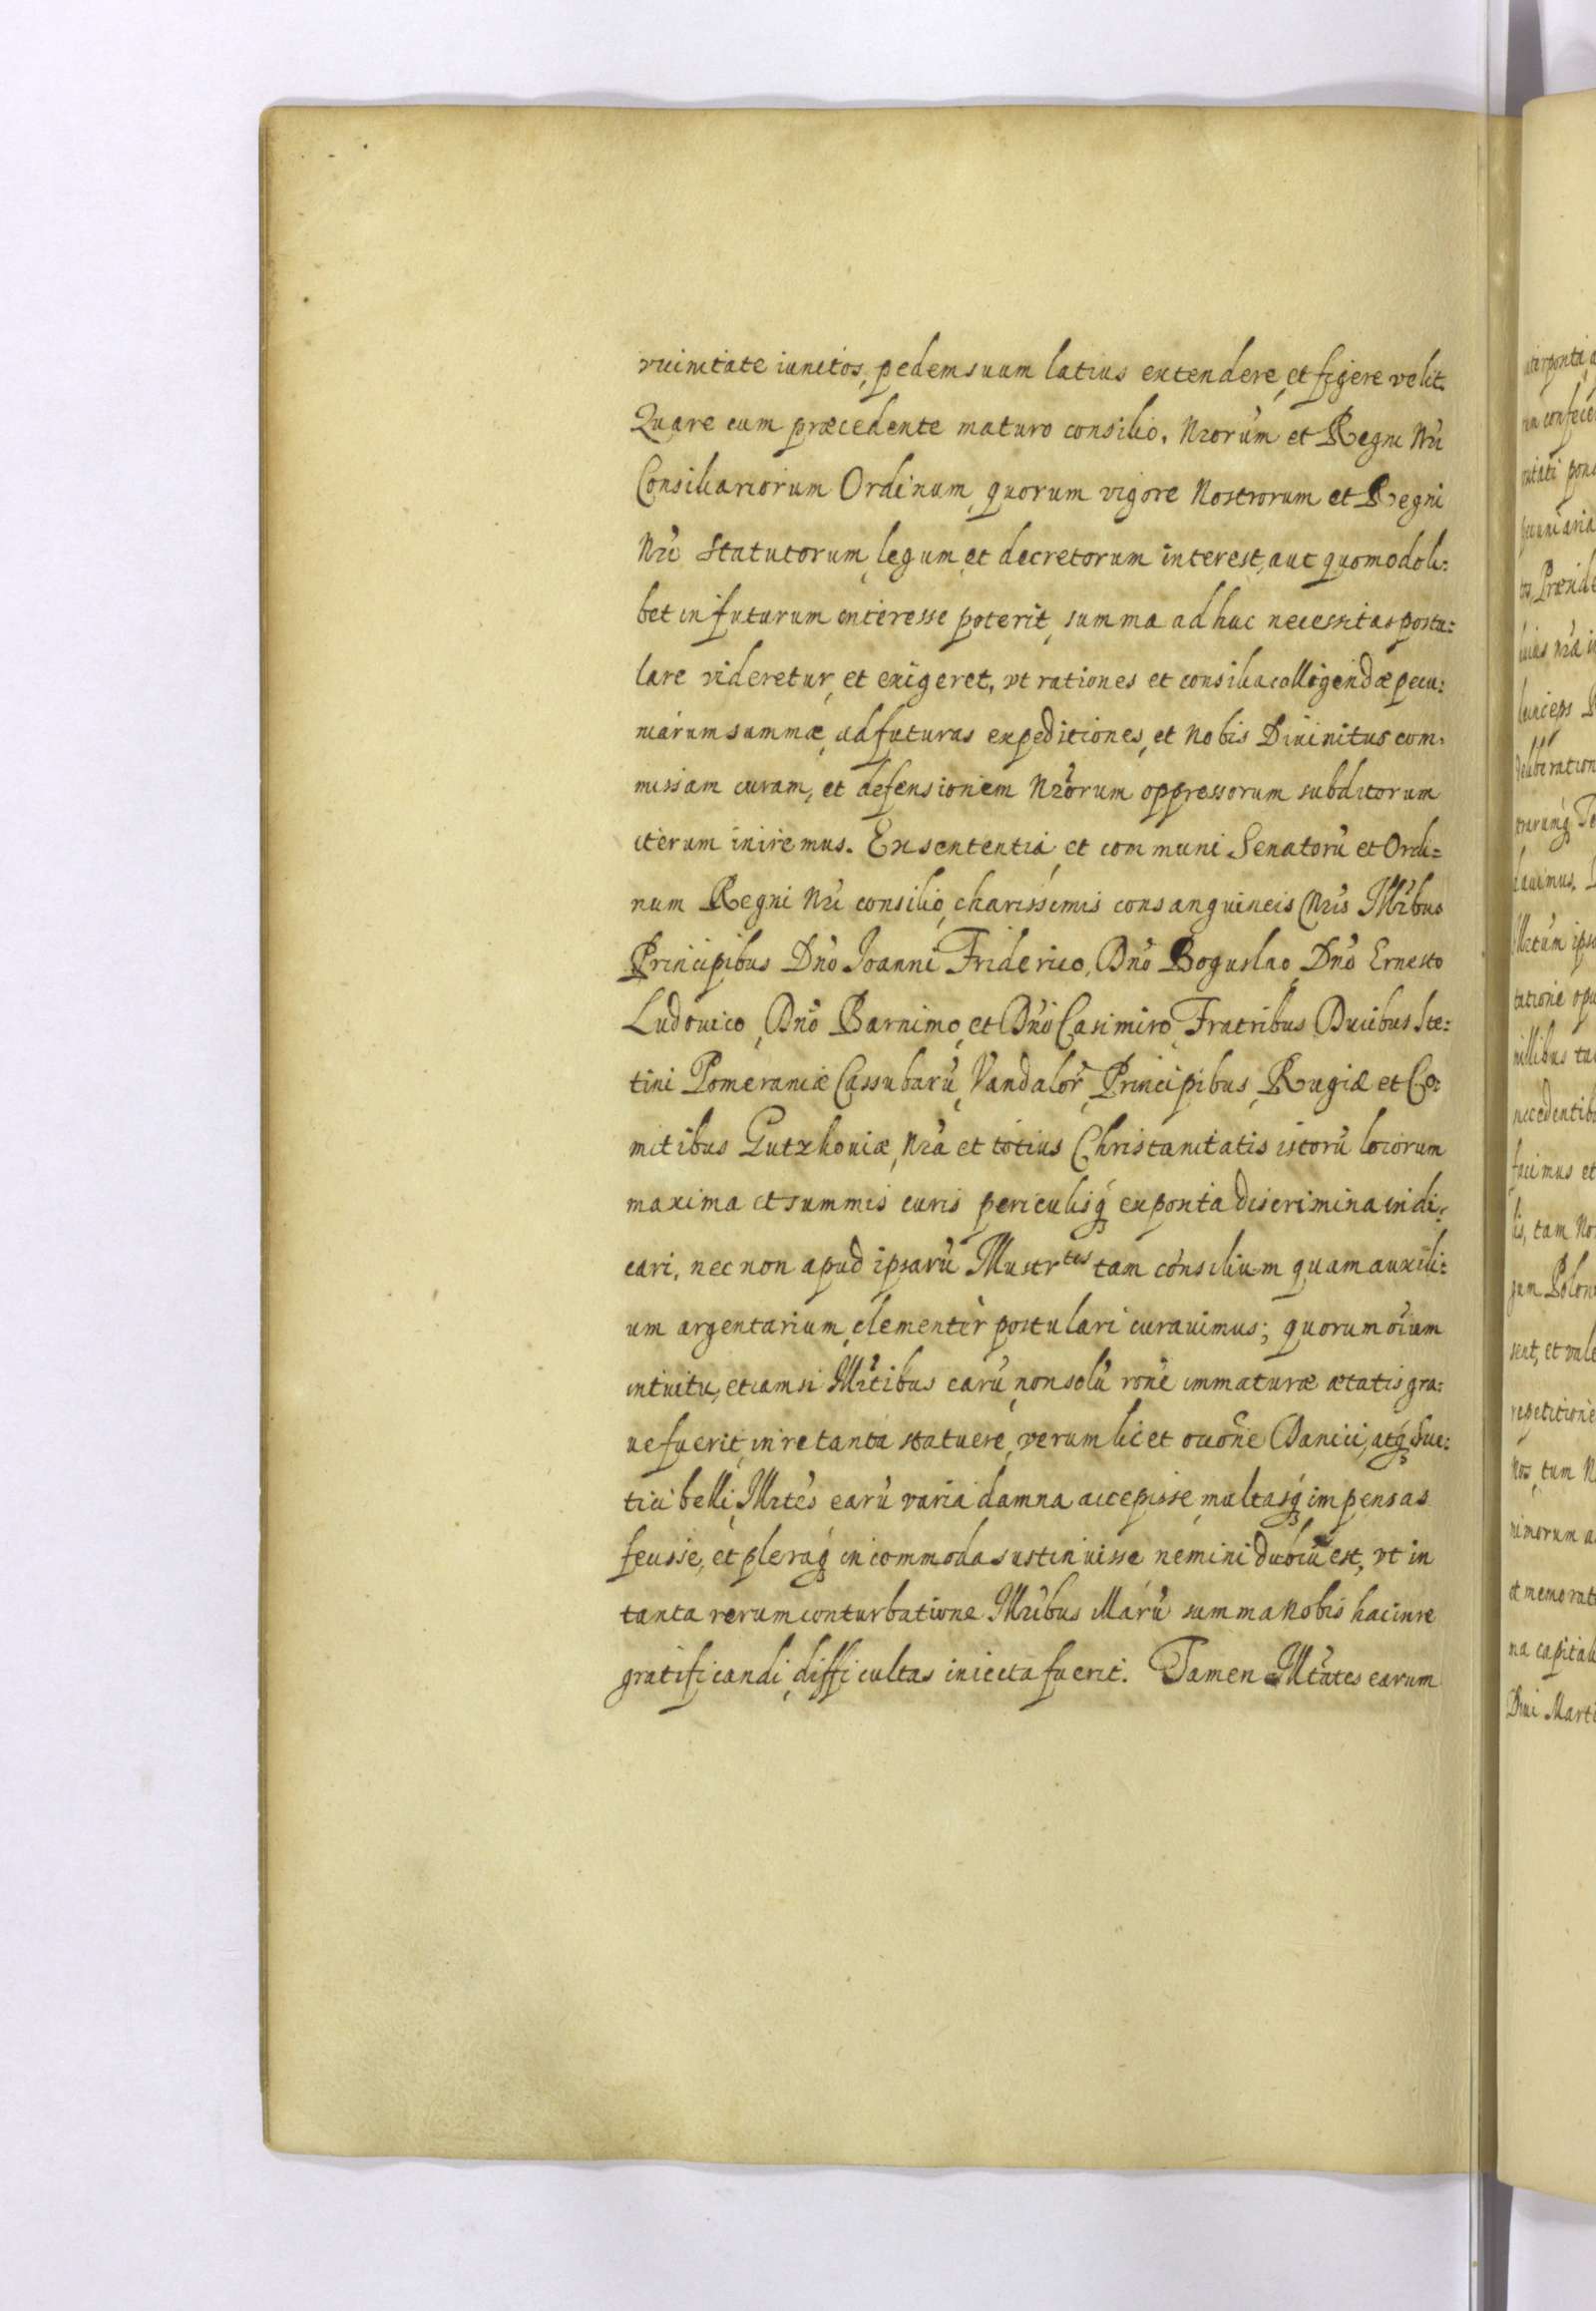 vicinitate iunctos, pedem suum latius extendere, et figere velit.
Quare cum præcedente maturo consilio, Nrorum et Regni Nri
Consiliariorum Ordinum, quorum vigore Nostrorum et Regni
Nri Statutorum, legum et decretorum interest, aut quomodoli:
bet in futurum interesse poterit, summa adhuc necessitas postu:
lare videretur, et exigeret, vt rationes et consilia colligendæ pecu:
niarum summæ, ad futuras expeditiones, et Nobis Diuinitus com:
missam curam, et defensionem Nrorum oppressorum subditorum
iterum iniremus. Ex sententia, et communi Senatorũ et Ordi:
num Regni Nri consilio, charissimis consanguineis Nris Illribus
Principibus Dno Joanni Friderico, Dno Boguslao, Dno Ernesto
Ludouico, Dno Barnimo, et Dno Casimiro, Fratribus Ducibus Ste:
tini Pomeraniæ Cassubarũ, Vandalor, Principibus, Rugiæ et Co:
mitibus Gutzkouiæ, Nra et totius Christanitatis istorũ locorum
maxima et summis curis periculisq exposita discrimina indi:
cari, nec non apud ipsarũ Illustrtes tam consilium quam auxili:
um argentarium, clementer postulari curauimus; quorum oium
intuitu, etiamsi Illrtibus earũ, non solũ rone immaturæ ætatis gra:
ue fuerit, in re tanta statuere, verum licet occõne Danici, atq Sue:
tici belli, Illrtes earũ varia damna accepisse, multasq impensas
fecisse, et pleraq incommoda sustinuisse nemini dubiũ est, vt in
tanta rerum conturbatione Illribus Illarũ summa Nobis hac in re
gratificandi, difficultas iniecta fuerit. Tamen Illtates earum